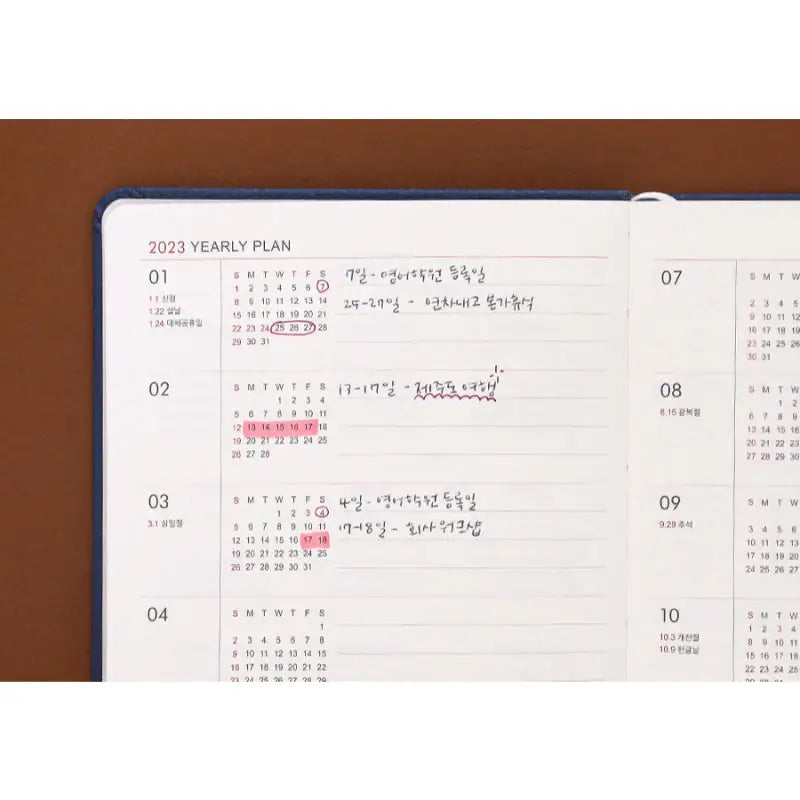 2023 YEARLY PLAN
01
1.1 신정
1.22 설날
1.24 대체공휴일
S M T W T F S
1 2 3 4 5 6 7
8 9 10 11 12 13 14
15 16 17 18 19 20 21
22 23 24 25 26 27 28
29 30 31
7일 - 영어학원 등록일
25-27일 - 연차내고 본가휴식
02
S M T W T F S
1 2 3 4
5 6 7 8 9 10 11
12 13 14 15 16 17 18
19 20 21 22 23 24 25
26 27 28
13-17일 - 제주도 여행!
03
3.1 삼일절
S M T W T F S
1 2 3 4
5 6 7 8 9 10 11
12 13 14 15 16 17 18
19 20 21 22 23 24 25
26 27 28 29 30 31
4일 - 영어학원 등록일
17-18일 - 회사 워크샵
04
S M T W T F S
1
2 3 4 5 6 7 8
9 10 11 12 13 14 15
16 17 18 19 20 21 22
23 24 25 26 27 28 29
07
S M T W
2 3 4 5
9 10 11 12
16 17 18 19
23 24 25 26
30 31
08
8.15 광복절
S M T W
1 2
6 7 8 9
13 14 15 16
20 21 22 23
27 28 29 30
09
9.29 추석
S M T W
3 4 5
10 11 12 13
17 18 19 20
24 25 26 27
10
10.3 개천절
10.9 한글날
S M T W
1 2 3 4
8 9 10 11
15 16 17 18
22 23 24 25